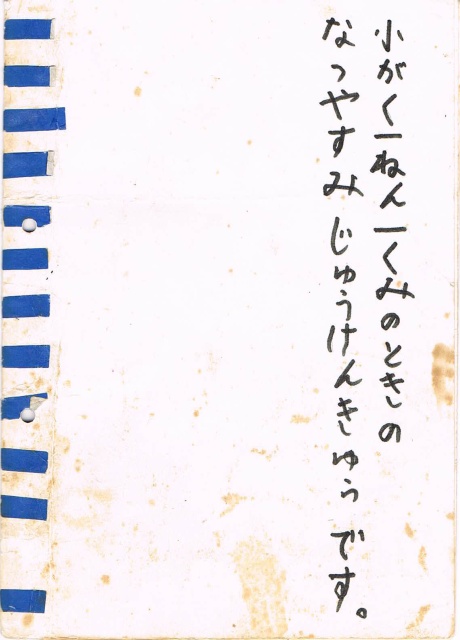 小がく一ねん一くみのときの
なつやすみじゅうけんきゅうです。